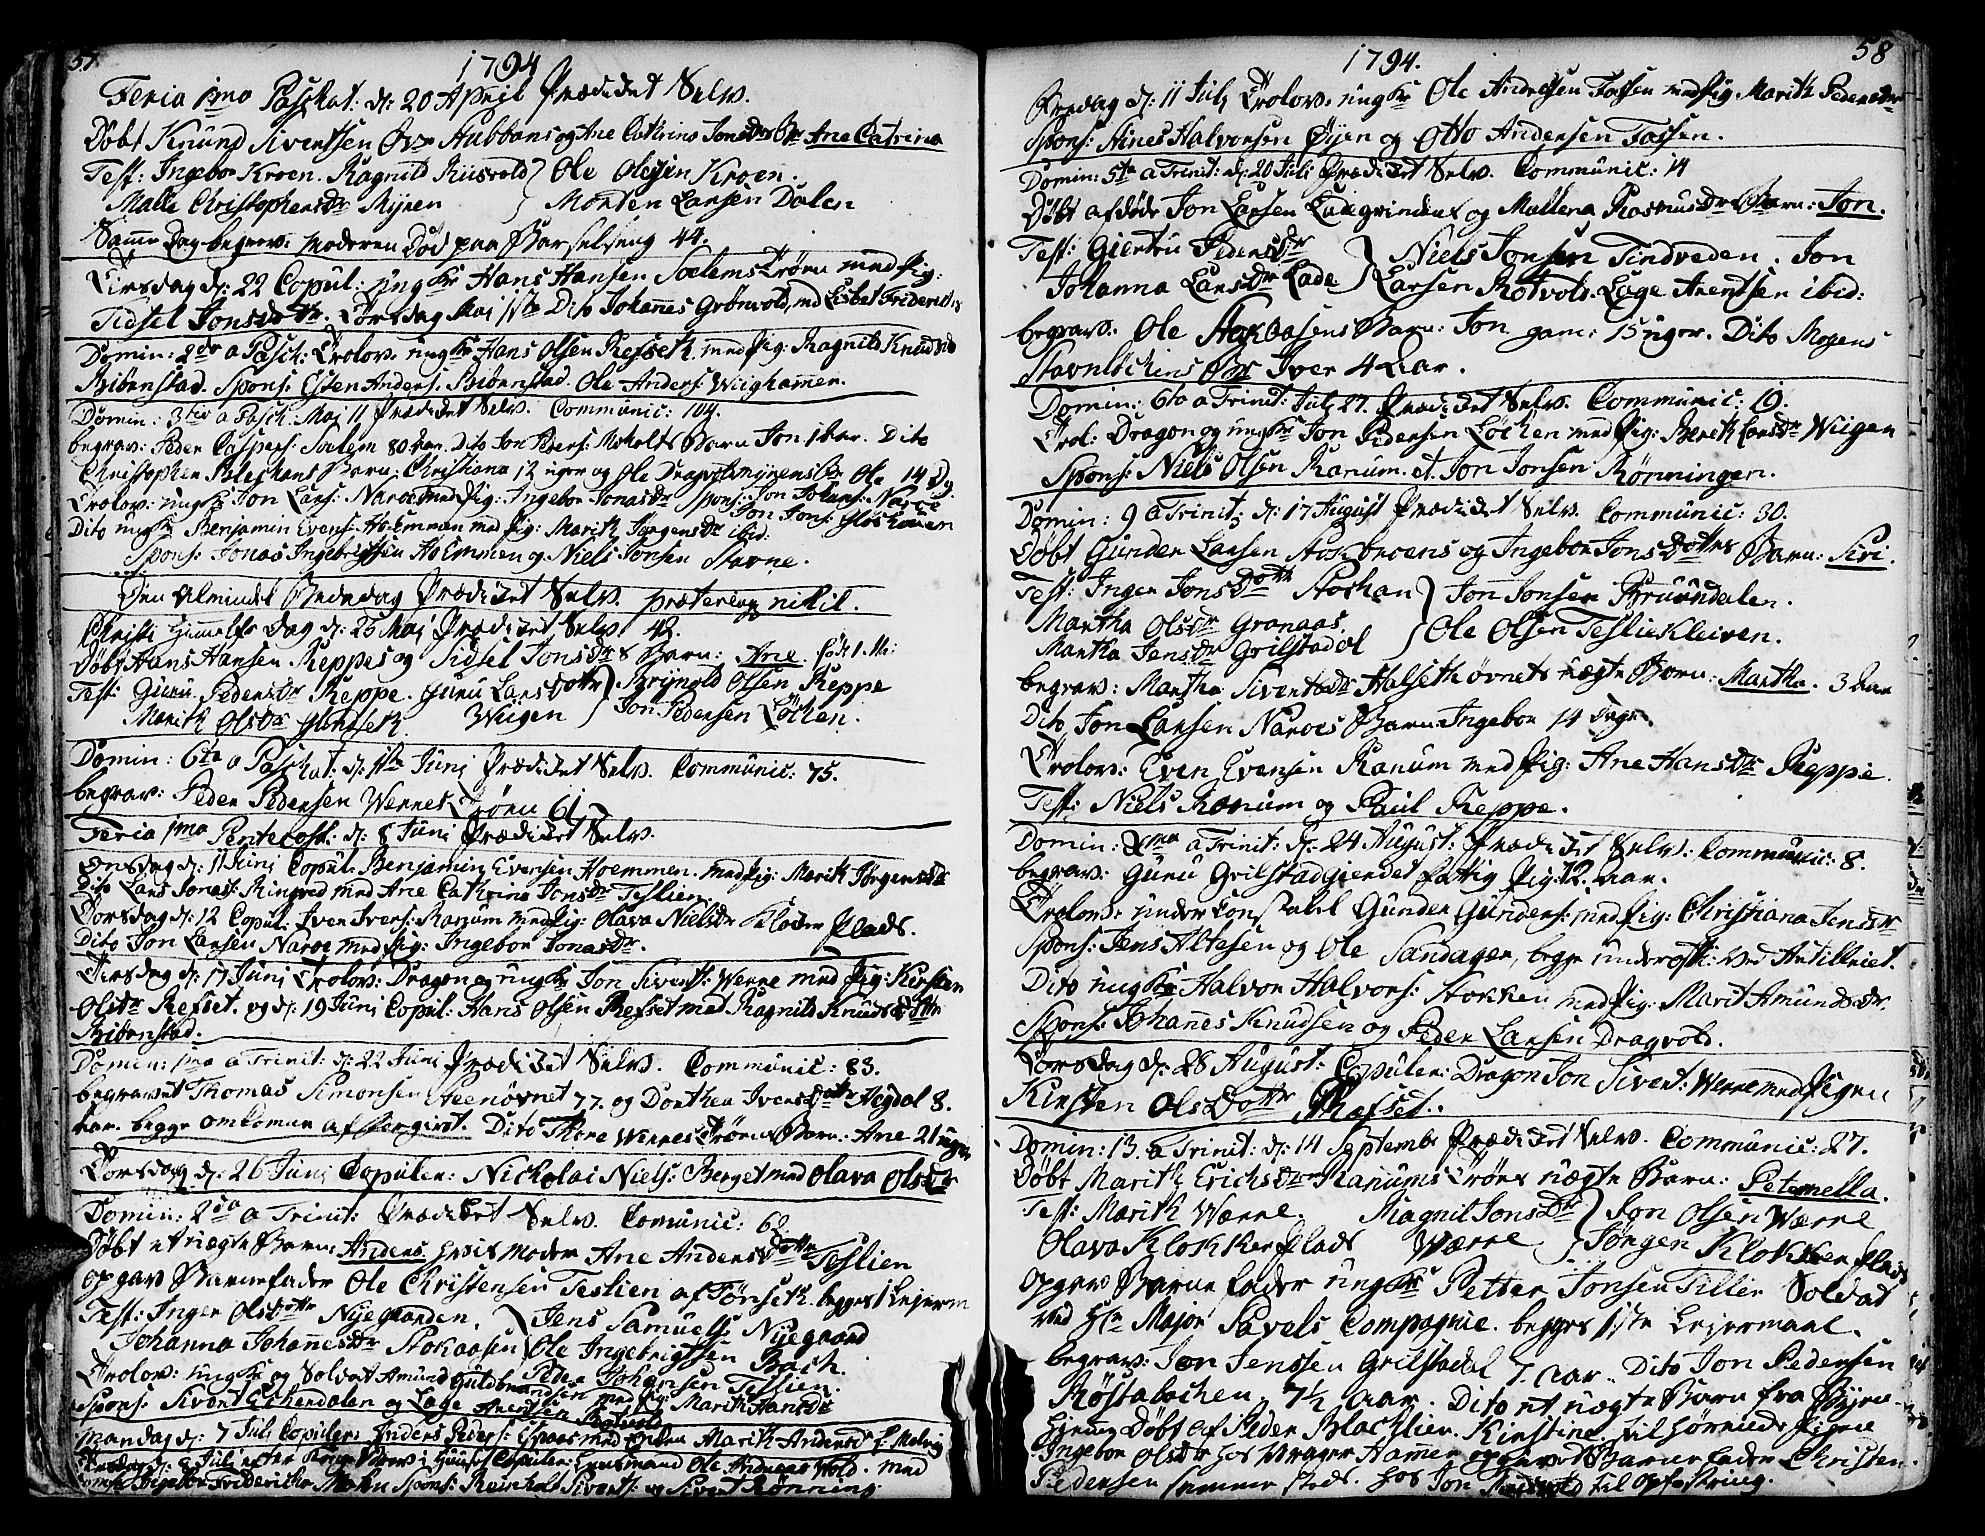 57.
1794
Feria 1mo Paschat: d: 20 April Prædiket Selv.
Døbt Knund Siventsen Hubbans og Ane Cathrina Jonsdr Br: Ane Catrina
Test: Ingebor Kroen. Ragnild Riisvold } Ole Olesen Kroen.
Malle Christophersdr Myren } Morten Larsen Dalen
Samme Dag begrav: Moderen Død paa Barselseng 44.
Tirsdag d: 22 Copul: ungkr Hans Hansen Solems Trøen med Pig:
Sidsel Jonsdotr. Torsdag Maj 1ste Dito Johannes Grønvold, md Lisbet Friderichs
Domin: 2do a Pasch: Trolov: ungkr Hans Olsen Refset med Pig: Ragnild Knudsd
Biörnstad. Spons: Esten Anders: Biörnstad. Ole Anders: Wiighammer.
Domin: 3tio a Pasch: Maj 11 Prædiket Selv. Communic: 104.
begrav: Peder Caspers: Solem 80 Aar. Dito Jon Peders: Moholts Barn Jon 1 Aar. Dito
Christopher Barn: Christiana 12 uger og Ole Dragvolsmyrens Br Ole 14 D.
Trolov: ungkr Jon Lars: Naroe med Pig: Ingebor Jonasdr Spons: Jon Johans: Naroe
Jon Jons: Gløshaven
Dito ungkr Benjamin Evens: HoEmman med Pig: Marith Jørgensdr ibid:
Spons: Jonas Ingebrigtsen HoEmmen og Niels Jonsen Stavne.
Den Almindel Bededag Prædiket Selv. præterea nihil.
Christi Himmelf: Dag d: 25 Maj Prædiket Selv. 42.
Døbt Hans Hansen Reppes og Sidsel Jonsdrs Barn: Ane. født
Test: Guru Pedersdr Reppe. Guru Larsdotr } Brynold Olsen Reppe
Marith Olsdr Wiigen } Jon Pedersen Løchen.
Domin: 6ta a Paschat: d: 1ste Junj Prædiket Selv. Communic: 75.
begrav: Peder Pedersen Wernes Trøen 61
Feria 1mo Pentecost: d: 8 Junj Prædiket Selv.
Onsdag d: 11 Junj Copul: Benjamin Evensen Hoemmen. med Pig: Marith Jørgensdr
Dito Lars Jonas: Ringved med Ane Cathrina Jonsdr Teslien
Torsdag d: 12 Copul: Iver Ivers: Ranum med Pig: Olava Nielsdr Kloker Plads.
Dito Jon Larsen Naroe med Pig: Ingebor Jonasdr.
Tirsdag d: 17 Junj Trolov: Dragon og ungkr Jon Sivert: Werre med Pig: Kirsten
Olsdr Refset. og d: 19 Junj Copul: Hans Olsen Refset med Ragnild Knudsdotr
Biörnstad.
Domin: 1ma a Trinit: d: 22 Junj Prædiket Selv. Communic: 83.
begravet Thomas Simonsen Steenøvnet 77. og Dorthea Iversdotr Aegdal 8.
Aar. begge omkomne af Dito Thore Wernes Trøens Barn: Ane 21 uger
Torsdag d: 26 Junj Copuler: Nickolai Niels: Berget med Olava Olsdr
Domin: 2da a Trinit: Prædiket Selv. Comunic: 62
Døbt et uægte Barn: Anders hvis Moder Ane Andersdotr Teslien
opgav Barnefader Ole Christensen Teslien af Tønseth. begges 1 Lejerm
Test: Inger Olsdotr Nyegaarden. } Jens Samuels: Nyegaard
Johanna Johannesdr Stokaasen } Ole Ingebrigtsen Bach.
Trolov: ungkr og Soldat Amund Guldbrandsen med Pig: Marith Hansdr
Peder Johansen Teslien.
Spons: Sivert Eikerdalen og Lage Arentsen Rotvold.
Mandag d: 7 Julj Copuler: Anders Peders: med Enken Marith Andersd f. Malvig
d: 9 Julj efter Copuler: Ole Andreas Wold. med
Ingebor Friderieke Spons: Reinholt Sivert: og Sivert Rønning

58
1794.
Fredag d: 11 Julj Trolov: ungkr Ole Andersen Tassen med Pig: Marith Pedersdr
Spons: Aines Halvorsen Øyen og Otto Andersen Tassen.
Domin: 5ta a Trinit: d: 20 Juli Prædiket Selv. Communic: 14
Døbt afdøde Jon Larsen Ladegrindens og Mallena Rasmusdrs Barn: Jon.
Test: Giertru Pedersdr } Niels Jonsen Tindveden. Jon
Johanna Larsdr Lade } Larsen Rotvold. Lage Arentsen ibid:
begrav: Ole Barn: Jon gam: 15 uger. Dito Mogens
Stavnløchens Br Iver 4 Aar.
Domin: 6ta a Trinit: Julj 27. Prædiket Selv. Communic: 19.
Trol: Dragon og ungkr Jon Pedersen Løchen med Pig: Berith Larsdr Wiigen
Spons: Niels Olsen Ranum. et. Jon Jonsen Rønningen.
Domin: 9 a Trinit: d: 17 August Prædiket Selv. Communic: 30.
Døbt Gunder Larsen Stokbroens og Ingebor Jonsdotrs Barn: Siri.
Test: Inger Jonsdotr Stokan } Jon Jonsen Bruundalen.
Martha Olsdr Granaas } Ole Olsen Teslie Kleiven.
Martha Jensdr Grilstadøl
begrav: Martha Sivertsdr Halseth øvnets uægte Barn: Martha. 3 Aar
Dito Jon Larsen Naroes Barn Ingebor 14 Dage.
Trolov: Even Evensen Ranum med Pig: Ane Hansdr Reppe.
Test: Niels Ranum og Paul Reppe.
Domin: Xma a Trinit: d: 24 August: Prædiket Selv: Communic: 8.
begrav: Guru Grilstadgiendet fattig Pig: 12. Aar.
Trolov: under Constabel Gunder Gunders: med Pig: Christiana Jensdr
Spons: Jens Altesen og Ole Sandager, begge ved Artilleriet.
Dito ungkr Halvor Halvors: Stokken med Pig: Marit Amundsdr.
Spons: Johannes Knudsen og Peder Larsen Dragvold.
Torsdag d: 28 August: Copuler: Dragon Jon Sivert: Werre med Pigen
Kirsten Olsdotr Refset.
Domin: 13. a Trinit: d: 14 Septembr Prædiket Selv. Communic: 27.
Døbt Marith Erichsdr Ranums Trøes uægte Barn: Peternella.
Test: Marith Wærre. Ragnil Jonsdr } Jon Olsen Wærre
Olava Klokker Plads Wærre } Jørgen Klokker Plads
Opgav Barne fader ungkr Petter Jonsen Tiller Soldat
ved Hr Major Pavels Compagnie. begges 1ste Lejermaal.
begrav: Jon Jenssen Grilstadøl 7. Aar. Dito Jon Pedersen
Røstabachen. 7½ Aar. Dito et uægte Barn fra Byen
hjeme Døbt af Peder Blachlier. Kirstine tilhørende Pigen
Ingebor Olsdr hos Hammer opgivet Barnefader Christen
Pedersen sammesteds. hos Jon til Opfostring.